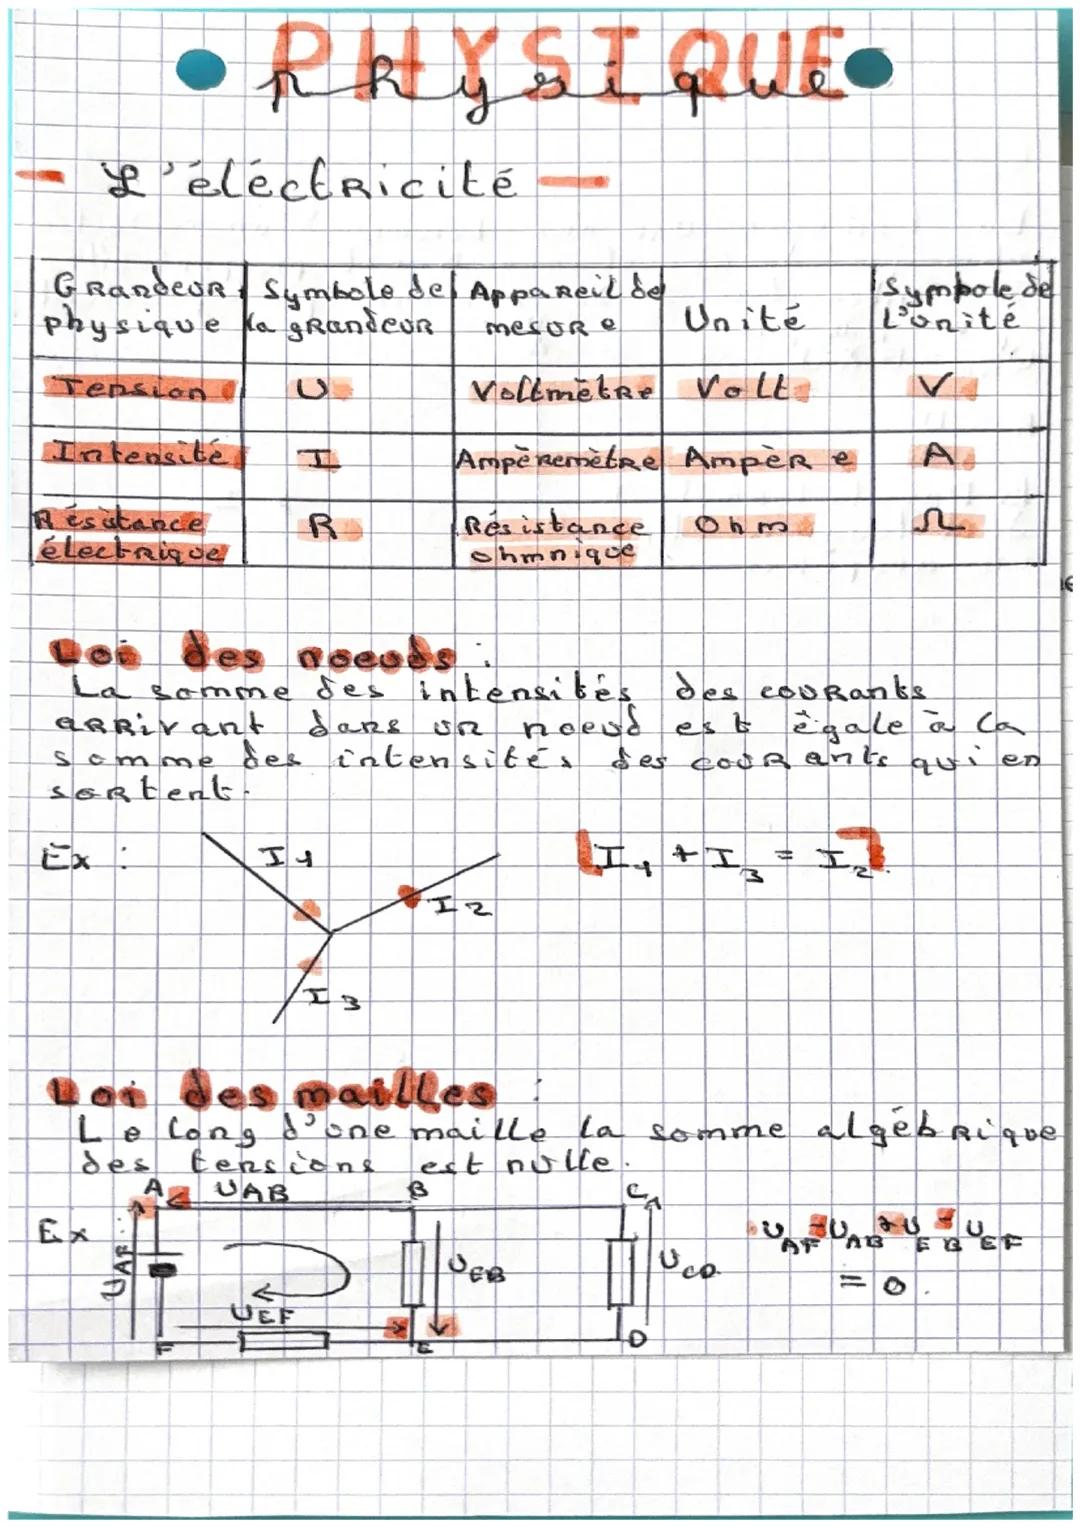 PHYSIQUE
physique
- L'éléctricité -
Grandeur physique | Symbole de la grandeur | Appareil de mesure | Unité | Symbole de l'unité
Tension | U | Voltmètre | Volt | V
Intensité | I | Ampèremètre | Ampère | A
Résistance électrique | R | Résistance ohmnique | Ohm | Ω
Loi des noeuds :
La somme des intensités des courants
arrivant dans un noeud est égale à la
somme des intensités des courants qui en
sortent.
Ex :
I1
I2
I3
I1 + I3 = I2
Loi des mailles :
Le long d'une maille la somme algébrique
des tensions est nulle.
Ex :
A
UAB
B
C
UAF
UEB
UCD
UEF
F
E
D
UAF - UAB + UEB - UEF
= 0.